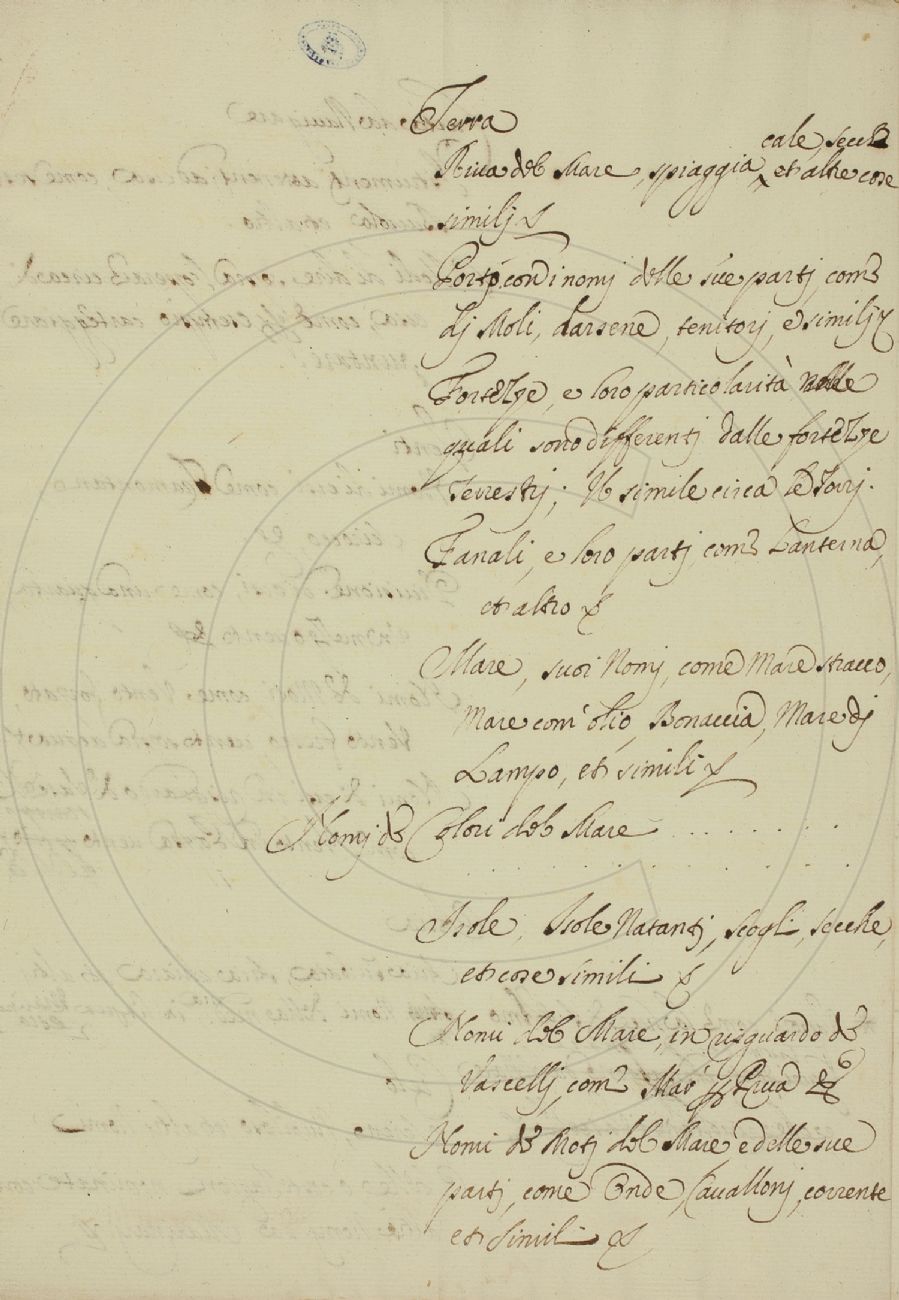 Terra
cale, secche
Riva del Mare, spiaggia, et altre cose
similj
Porto, con i nomj delle sue partj, come
dj Moli, darsene, tenitorj, e similj
Fortezze, e loro particolarità nelle
quali sono differentj dalle fortezze
Terrestrj; Il simile circa le Torrj.
Fanali, e loro partj, come Lanterna,
et altro
Mare, suoi Nomj, come Mare stracco,
Mare com' olio, Bonaccia, Mare dj
Lampo, et simili
Nomj de Colori del Mare . . . . . . .
. . . . . . . . .
Isole, Isole Natantj, scogli, secche,
et cose simili
Nomi del Mare, in risguardo de
Vascellj, come Mar Riva
Nomi de Motj del Mare e delle sue
partj, come Onde, Cavallonj, corrente
et Simili